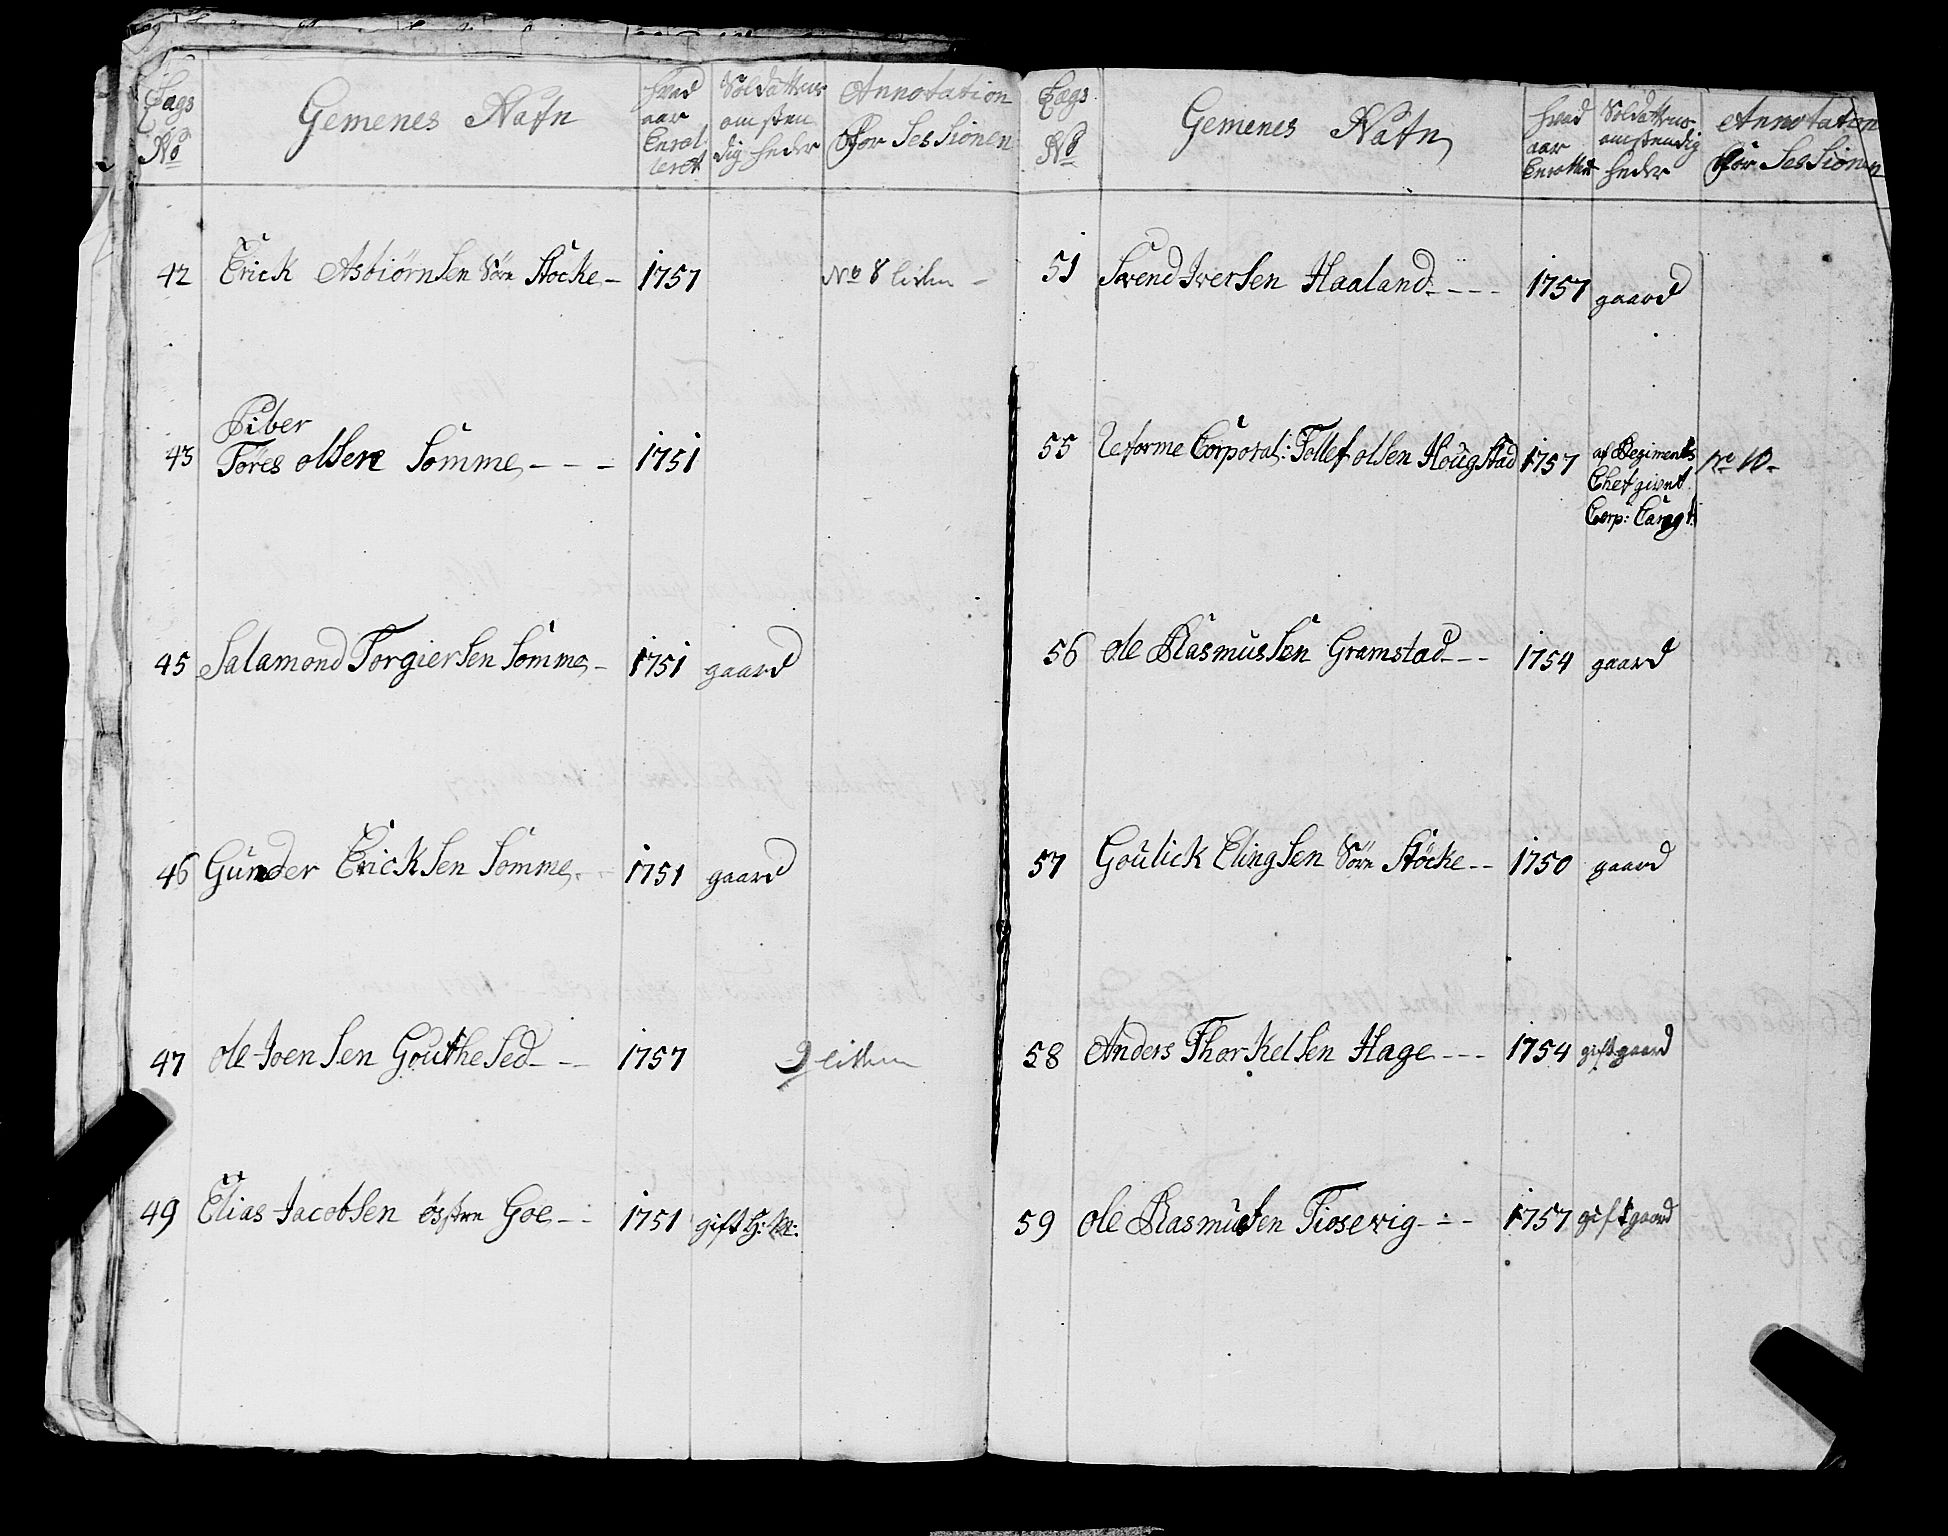 Lægs No
Gemenes Nafn
hvad aar Enrolleret
Soldatens omstendigheder
Annotation For Sessionen
42 Erick Asbiørnsen Sørr Stocke 1757 No 8 liden
43 Piber
Töres olsen Somme 1751
45 Salamond Torgiersen Somme 1751 gaard
46 Gunder Ericksen Somme 1751 gaard
47 ole Joensen Gouthesed 1757 9 liden
49 Elias Jacobsen östre Goe 1751 gift
Lægs No
Gemenes Nafn
hvad aar Enrollet
Soldattens omstendigheder
Annotation For Sessionen
51 Svend Iversen Haaland 1757 gaard
55 Reforme Corporal: Tollef olsen Hougstad 1757 af Regiments No 10
Chef givet
Corp: Caragt:
56 ole Rasmussen Gramstad 1754 gaard
57 Goulick Elingsen Sörr Stöcke 1750 gaard
58 Anders Thorkelsen Hage 1754 gift gaard
59 ole Rasmusen Tiosevig 1757 gift gaard